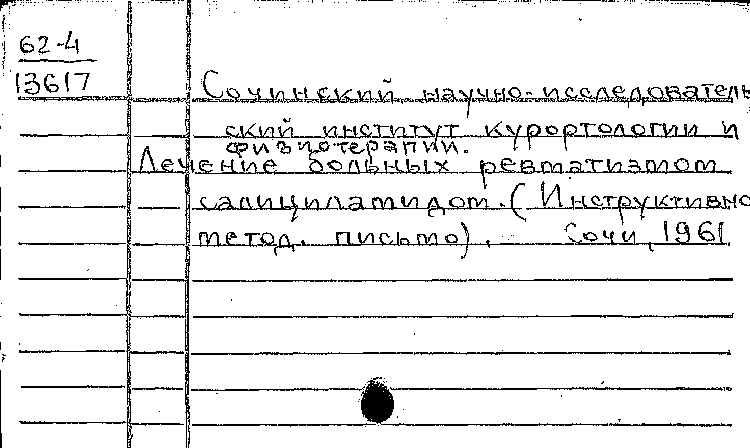 62-4
13617
Сочинский научно-исследователь
ский институт курортологии и
физиотерапии.
Лечение больных ревматизмом
салициламидом. (Инструктивно
метод. письмо). Сочи, 1961